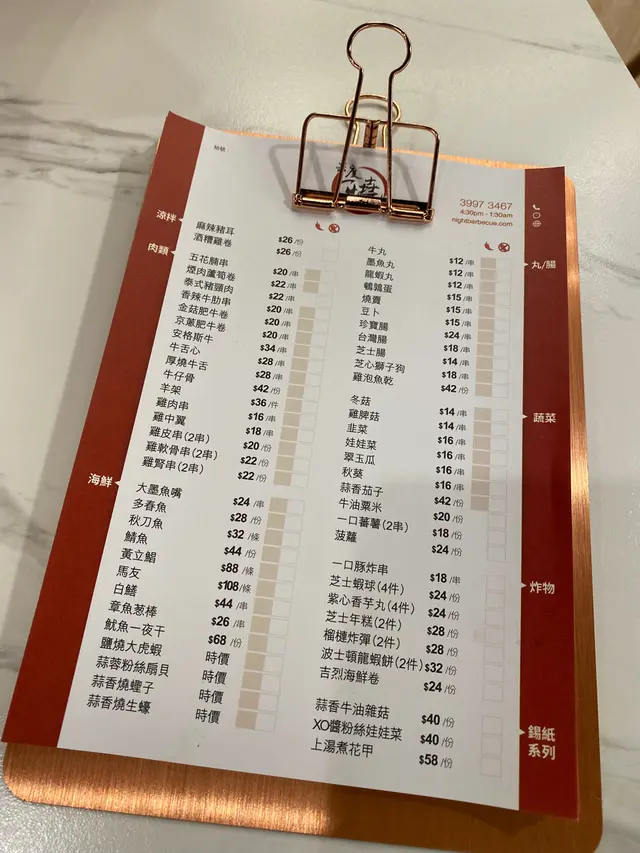 枱號
3997 3467
4:30pm - 1:30am
nightbarbecue.com
涼拌
麻辣豬耳 $26/份
酒糟雞卷 $26/份
肉類
五花腩串 $20/串
煙肉蘆筍卷 $22/串
泰式豬頸肉 $22/串
香辣牛肋串 $20/串
金菇肥牛卷 $20/串
京蔥肥牛卷 $20/串
安格斯牛 $34/串
牛舌心 $28/串
厚燒牛舌 $28/串
牛仔骨 $42/份
羊架 $36/件
雞肉串 $16/串
雞中翼 $18/串
雞皮串(2串) $20/份
雞軟骨串(2串) $22/份
雞腎串(2串) $22/份
海鮮
大墨魚嘴 $24/串
多春魚 $28/份
秋刀魚 $32/條
鯖魚 $44/份
黃立鯧 $88/條
馬友 $108/條
白鱔 $44/串
章魚葱棒 $26/串
魷魚一夜干 $68/份
鹽燒大虎蝦 時價
蒜蓉粉絲扇貝 時價
蒜香燒蟶子 時價
蒜香燒生蠔 時價
丸/腸
牛丸 $12/串
墨魚丸 $12/串
龍蝦丸 $12/串
鵪鶉蛋 $15/串
燒賣 $15/串
豆卜 $15/串
珍寶腸 $24/串
台灣腸 $18/串
芝士腸 $14/串
芝心獅子狗 $18/串
雞泡魚乾 $42/份
蔬菜
冬菇 $14/串
雞脾菇 $14/串
韭菜 $16/串
娃娃菜 $16/串
翠玉瓜 $16/串
秋葵 $16/串
蒜香茄子 $42/份
牛油粟米 $20/份
一口蕃薯(2串) $18/份
菠蘿 $24/份
炸物
一口豚炸串 $18/串
芝士蝦球(4件) $24/份
紫心香芋丸(4件) $24/份
芝士年糕(2件) $28/份
榴槤炸彈(2件) $28/份
波士頓龍蝦餅(2件) $32/份
吉烈海鮮卷 $24/份
錫紙
系列
蒜香牛油雜菇 $40/份
XO醬粉絲娃娃菜 $40/份
上湯煮花甲 $58/份